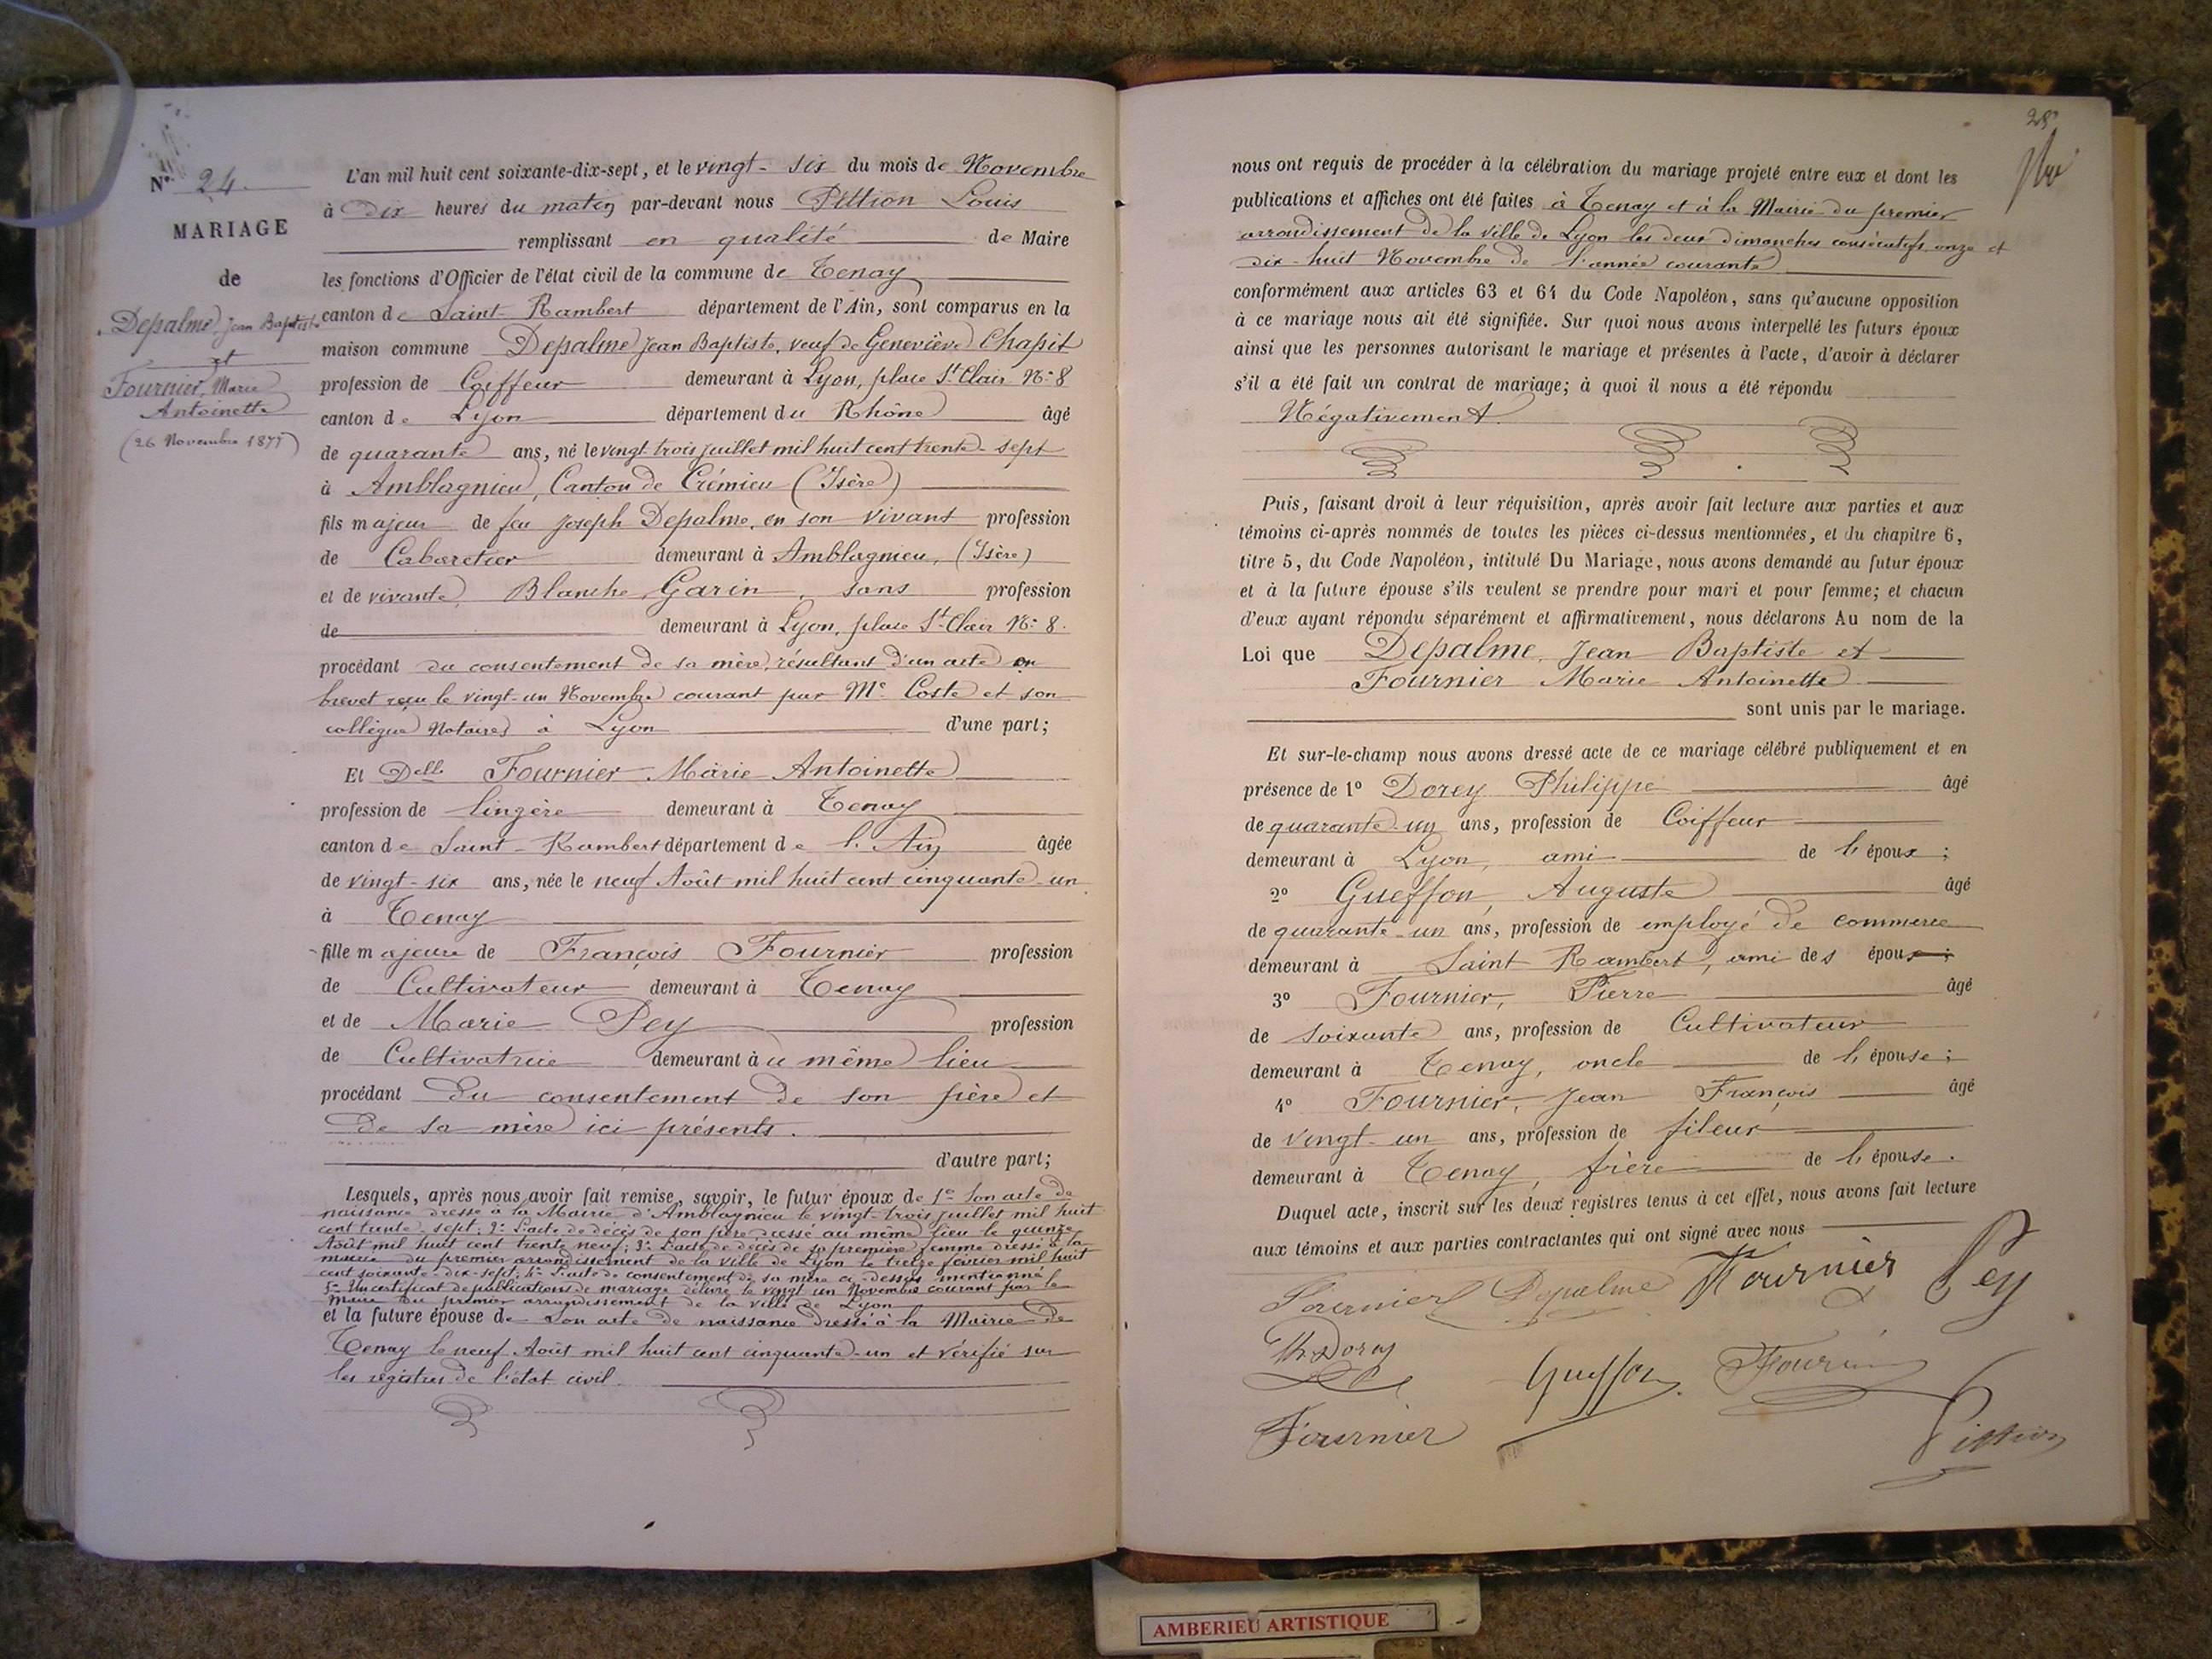 N° 24.
MARIAGE
de
Depalme, Jean Baptiste
et
Fournier, Marie
Antoinette
(26 Novembre 1877)
L'an mil huit cent soixante-dix-sept, et le vingt-six du mois de Novembre
à dix heures du matin par-devant nous Pittion Louis
remplissant en qualité de Maire
les fonctions d'Officier de l'état civil de la commune de Tenay
canton de Saint-Rambert département de l'Ain, sont comparus en la
maison commune Depalme Jean Baptiste, veuf de Geneviève Chapit
profession de Coiffeur demeurant à Lyon, place St. Clair N° 8
canton de Lyon département du Rhône âgé
de quarante ans, né le vingt-trois juillet mil huit cent trente-sept
à Amblagnieu, Canton de Crémieu (Isère)
fils majeur de feu Joseph Depalme, en son vivant profession
de Cabaretier demeurant à Amblagnieu, (Isère)
et de vivante Blanche Garin, sans profession
de demeurant à Lyon, place St. Clair N° 8.
procédant du consentement de sa mère, résultant d'un acte en
brevet reçu le vingt-un Novembre courant par Me. Coste et son
collègue Notaires à Lyon d'une part;
Et Delle Fournier Marie Antoinette
profession de lingère demeurant à Tenay
canton de Saint-Rambert département de l'Ain âgée
de vingt-six ans, née le neuf Août mil huit cent cinquante-un
à Tenay
fille majeure de François Fournier profession
de Cultivateur demeurant à Tenay
et de Marie Pey profession
de Cultivatrice demeurant à u même lieu
procédant du consentement de son père et
de sa mère ici présents.
d'autre part;
Lesquels, après nous avoir fait remise, savoir, le futur époux de 1° Son acte de
naissance dressé à la Mairie d'Amblagnieu le vingt-trois juillet mil huit
cent trente-sept; 2° L'acte de décès de son père dressé au même lieu le quinze
Août mil huit cent trente neuf; 3° L'acte de décès de sa première femme dressé à la
mairie du premier arrondissement de la ville de Lyon le treize février mil huit
cent soixante-dix-sept; 4° L'acte de consentement de sa mère ci-dessus mentionné;
5° Un certificat de publications de mariage délivré le vingt un Novembre courant par le
Maire du premier arrondissement de la ville de Lyon
et la future épouse de son acte de naissance dressé à la Mairie de
Tenay le neuf Août mil huit cent cinquante-un et vérifié sur
les régistres de l'état civil.
28
nous ont requis de procéder à la célébration du mariage projeté entre eux et dont les
publications et affiches ont été faites à Tenay et à la Mairie du premier
arrondissement de la ville de Lyon les deux dimanches consécutifs onze et
dix-huit Novembre de l'année courante
conformément aux articles 63 et 64 du Code Napoléon, sans qu'aucune opposition
à ce mariage nous ait été signifiée. Sur quoi nous avons interpellé les futurs époux
ainsi que les personnes autorisant le mariage et présentes à l'acte, d'avoir à déclarer
s'il a été fait un contrat de mariage; à quoi il nous a été répondu
Négativement.
Puis, faisant droit à leur réquisition, après avoir fait lecture aux parties et aux
témoins ci-après nommés de toutes les pièces ci-dessus mentionnées, et du chapitre 6,
titre 5, du Code Napoléon, intitulé Du Mariage, nous avons demandé au futur époux
et à la future épouse s'ils veulent se prendre pour mari et pour femme; et chacun
d'eux ayant répondu séparément et affirmativement, nous déclarons Au nom de la
Loi que Depalme, Jean Baptiste et
Fournier Marie Antoinette
sont unis par le mariage.
Et sur-le-champ nous avons dressé acte de ce mariage célébré publiquement et en
présence de 1° Dorey Philippe âgé
de quarante-un ans, profession de Coiffeur
demeurant à Lyon, ami de l'époux;
2° Gueffon, Auguste âgé
de quarante-un ans, profession de employé de commerce
demeurant à Saint Rambert, ami des époux;
3° Fournier, Pierre âgé
de soixante ans, profession de Cultivateur
demeurant à Tenay, oncle de l'épouse;
4° Fournier, Jean François âgé
de vingt-un ans, profession de fileur
demeurant à Tenay, frère de l'épouse.
Duquel acte, inscrit sur les deux registres tenus à cet effet, nous avons fait lecture
aux témoins et aux parties contractantes qui ont signé avec nous
Fournier Depalme Fournier Pey
Ph. Dorey Gueffon Fournier
Fournier Pittion
AMBERIEU ARTISTIQUE